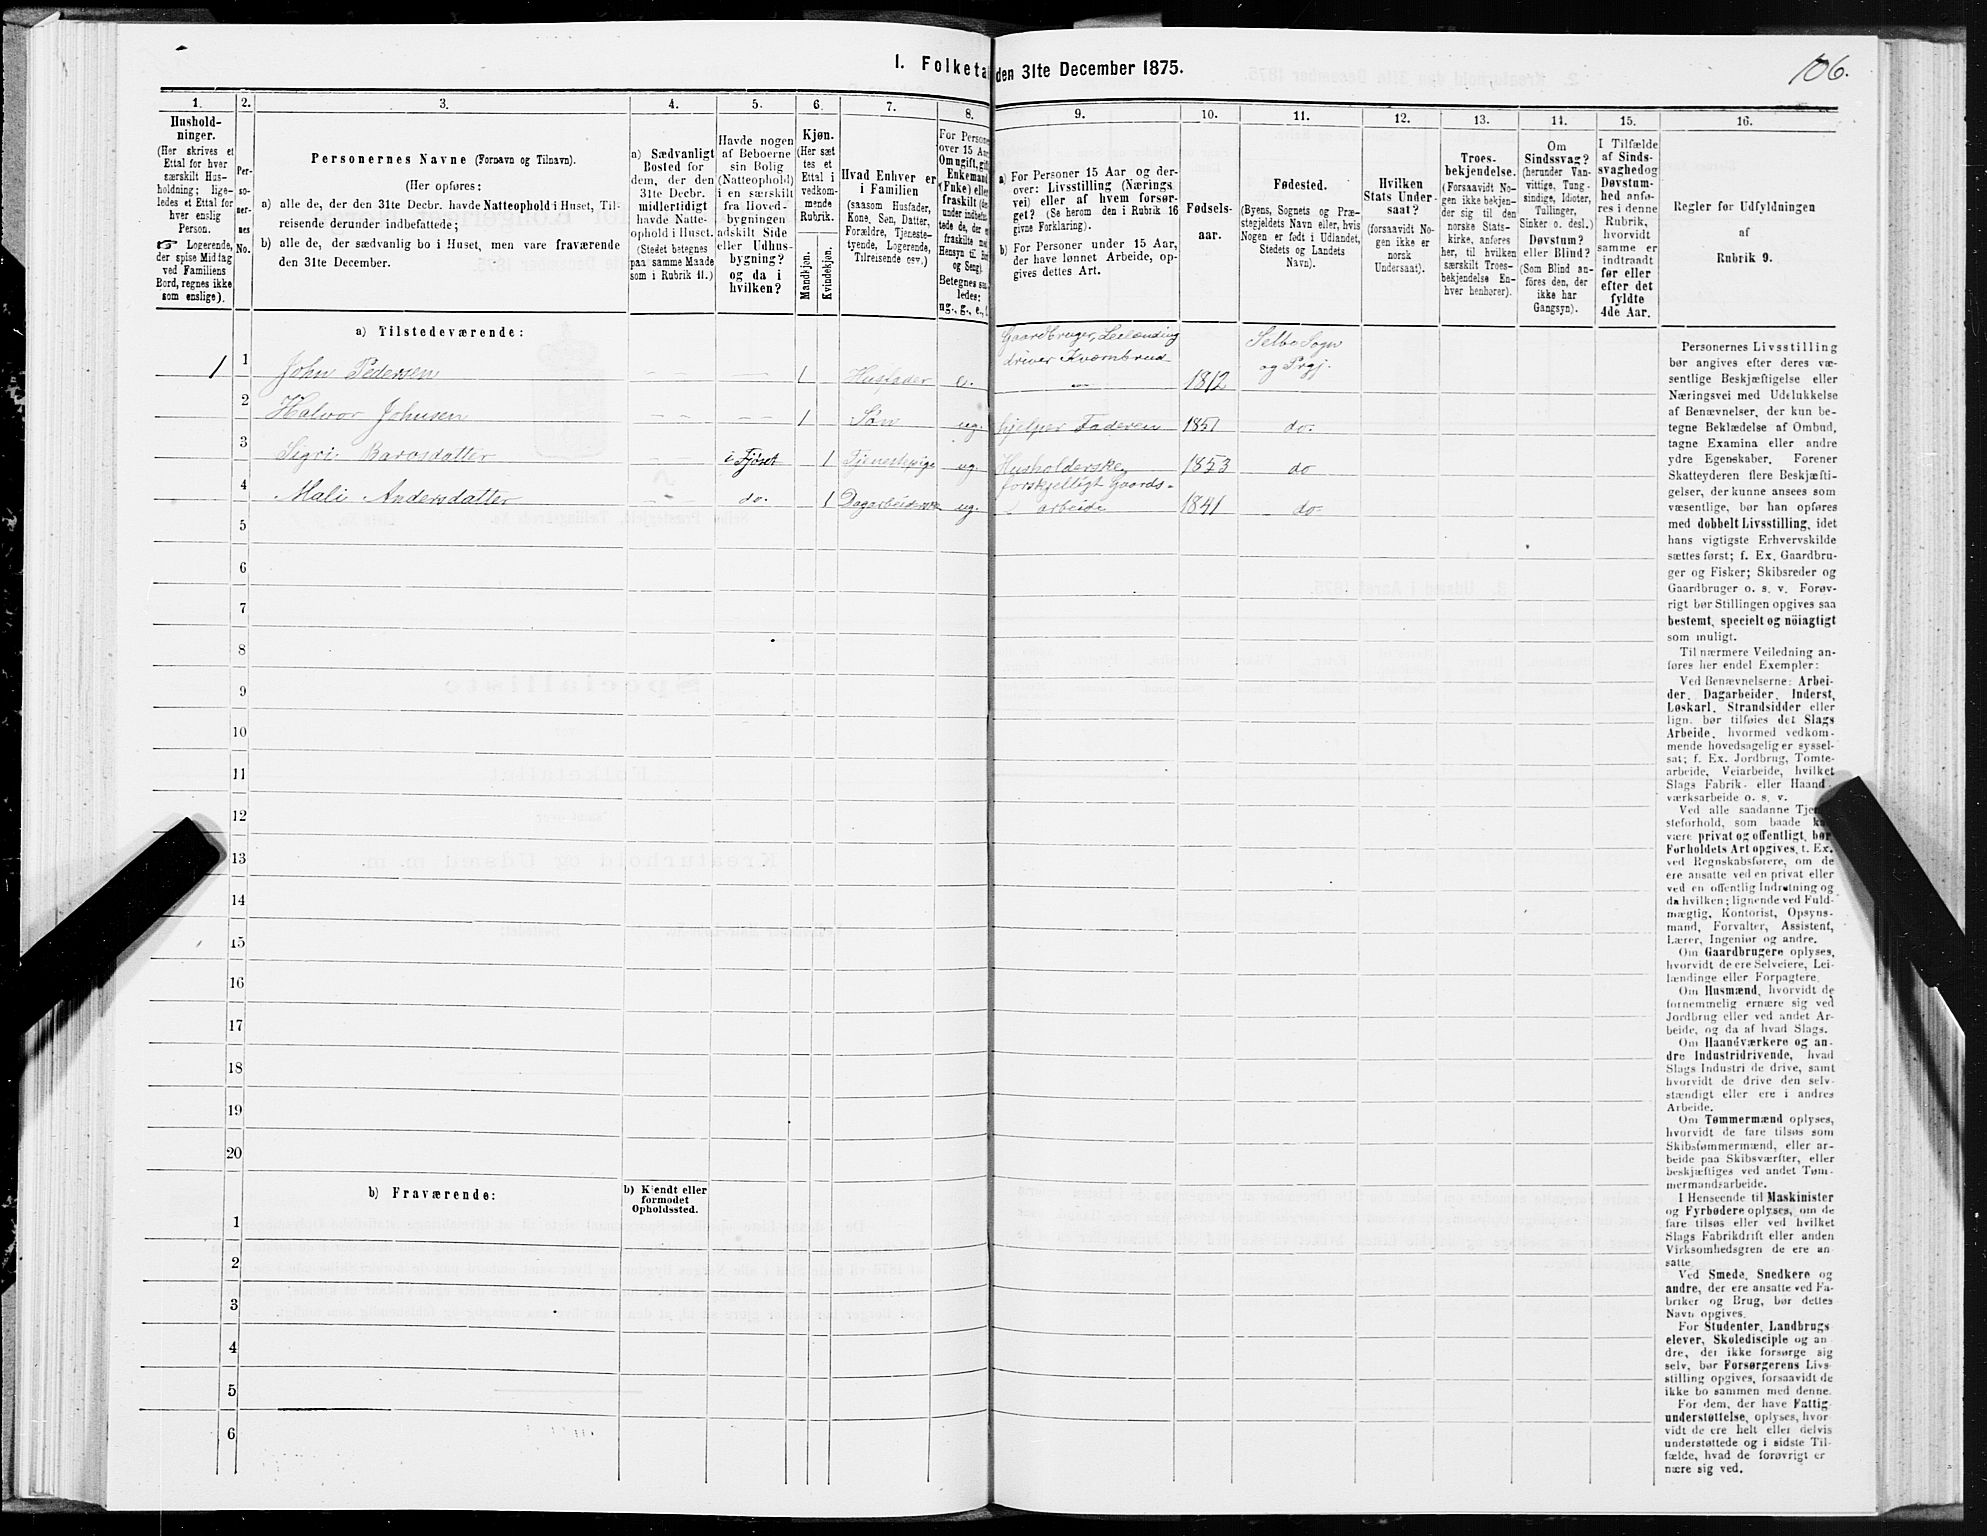 106.
I. Folketa
den 31te December 1875.
1. 2. 3. 4. 5. 6. 7. 8. 9. 10. 11. 12. 13. 14. 15. 16.
Hushold-
ninger.
(Her skrives et
Ettal for hver
særskilt Hus-
holdning; lige-
ledes et Ettal for
hver enslig
Person.
☞ Logerende,
der spise Middag
ved Familiens
Bord, regnes ikke
som enslige).
Per-
so-
ner-
nes
No.
Personernes Navne (Fornavn og Tilnavn).
(Her opføres:
a) alle de, der den 31te Decbr. havde Natteophold i Huset, Til-
reisende derunder indbefattede;
b) alle de, der sædvanlig bo i Huset, men vare fraværende
den 31te December.
a) Sædvanligt
Bosted for
dem, der den
31te Decbr.
midlertidigt
havde Natte-
ophold i Huset.
(Stedet betegnes
paa samme Maade
som i Rubrik 11.)
Havde nogen
af Beboerne
sin Bolig
(Natteophold)
i en særskilt
fra Hoved-
bygningen
adskilt Side
eller Udhus-
bygning?
og da i
hvilken?
Kjøn.
(Her sæt
tes et
Ettal i
vedkom-
mende
Rubrik.
Mandkjøn.
Kvindekjøn.
Hvad Enhver er
i Familien
(saasom Husfader,
Kone, Søn, Datter,
Forældre, Tjeneste-
tyende, Logerende,
Tilreisende osv.)
For Persone
over 15 Aar
Om ugift, gift
Enkemand
(Enke) eller
fraskilt (der
under indbefat-
tede de, der er
fraskilte med
Hensyn til Bor
og Seng).
Betegnes saa-
ledes:
ug., g., e., f.
a) For Personer 15 Aar og der-
over: Livsstilling (Nærings
vei) eller af hvem forsør-
get? (Se herom den i Rubrik 16
givne Forklaring).
b) For Personer under 15 Aar,
der have lønnet Arbeide, op-
gives dettes Art.
Fødsels-
aar.
Fødested.
(Byens, Sognets og Præ-
stegjeldets Navn eller, hvis
Nogen er født i Udlandet,
Stedets og Landets
Navn).
Hvilken
Stats Under-
saat?
(forsaavidt No-
gen ikke er
norsk
Undersaat).
Troes-
bekjendelse.
(Forsaavidt No-
gen ikke bekjen-
der sig til den
norske Stats-
kirke, anføres
her, til hvilken
særskilt Troes-
bekjendelse En-
hver henhører).
Om
Sindssvag?
(herunder Van-
vittige, Tung-
sindige, Idioter,
Tullinger,
Sinker o. desl.)
Døvstum?
eller Blind?
(Som Blind an-
føres den, der
ikke har
Gangsyn).
I Tilfælde
af Sinds-
svaghed og
Døvstum-
hed anfø-
res i denne
Rubrik,
hvorvidt
samme er
indtraadt
før eller
efter det
fyldte
4de Aar.
Regler for Udfyldningen
af
Rubrik 9.
a) Tilstedeværende:
Gaardbruger, Leilænding
driver Kværnbrud
Selbo Sogn
og Prgj.
1 1 John Pedersen — — — — 1 Husfader e. — 1812
2 Halvor Johnsen — — — — 1 Søn ug. hjelper Faderen 1851 do.
3 Sigri Barosdatter i Fjøset 1 Tjenestepige ug. Husholderske, 1853 do
forskjelligt Gaards-
4 Mali Andersdatter — — do. 1 Dagarbeiderske ug. arbeide 1841 do
5
6
7
8
9
10
11
12
13
14
15
16
17
18
19
20
b) Fraværende:
b) Kjendt eller
formodet
Opholdssted.
1
2
3
4
5
6
Personernes Livsstilling
bør angives efter deres væ-
sentlige Beskjæftigelse eller
Næringsvei med Udelukkelse
af Benævnelser, der kun be-
tegne Beklædelse af Ombud,
tagne Examina eller andre
ydre Egenskaber. Forener
Skatteyderen flere Beskjæfti-
gelser, der kunne ansees som
væsentlige, bør han opføres
med dobbelt Livsstilling, idet
hans vigtigste Erhvervskilde
sættes først; f. Ex. Gaardbru-
ger og Fisker; Skibsreder og
Gaardbruger o. s. v. Forøv-
rigt bør Stillingen opgives saa
bestemt, specielt og nöiagtigt
som muligt.
Til nærmere Veiledning an-
føres her endel Exempler:
Ved Benævnelserne: Arbei-
der, Dagarbeider, Inderst,
Løskarl, Strandsidder eller
lign. bør tilføies det Slags
Arbeide, hvormed vedkom-
mende hovedsagelig er syssel-
sat; f. Ex. Jordbrug, Tomte-
arbeide, Veiarbeide, hvilket
Slags Fabrik- eller Haand-
værksarbeide o. s. v.
Ved alle saadanne Tjene-
steforhold, som baade kan
være privat og offentligt, bør
Forholdets Art opgives, t. Ex.
ved Regnskabsførere, om de
ere ansatte ved en privat eller
ved en offentlig Indretning og
da hvilken; lignende ved Fuld-
mægtig, Kontorist, Opsyns-
mand, Forvalter, Assistent,
Lærer, Ingeniør og andre.
Om Gaardbrugere oplyses,
hvorvidt de ere Selveiere, Lei-
lændinge eller Forpagtere.
Om Husmænd, hvorvidt de
fornemmelig ernære sig ved
Jordbrug eller ved andet Ar-
beide, og da af hvad Slags.
Om Haandværkere og an-
dre Industridrivende, hvad
Slags Industri de drive, samt
hvorvidt de drive den selv-
stændigt eller ere i andres
Arbeide.
Om Tømmermænd oplyses,
hvorvidt de fare tilsøs som
Skibstømmermænd, eller ar-
beide paa Skibsværfter, eller
beskjæftiges ved andet Tøm-
mermandsarbeide.
I Henseende til Maskinister
og Fyrbødere oplyses, om de
fare tilsøs eller ved hvilket
Slags Fabrikdrift eller anden
Virksomhedsgren de ere an-
satte.
Ved Smede, Snedkere og
andre, der ere ansatte ved Fa-
briker og Brug, bør dettes
Navn opgives.
For Studenter, Landbrugs
elever, Skoledisciple og an
dre, der ikke forsørge sig
selv, bør Forsørgerens Livs
stilling opgives, forsaavidt de
ikke bo sammen med denne.
For dem, der have Fattig
understøttelse, oplyses, hvor
vidt de ere helt eller delvis
understøttede og i sidste Til-
fælde, hvad de forøvrigt er
nære sig ved.